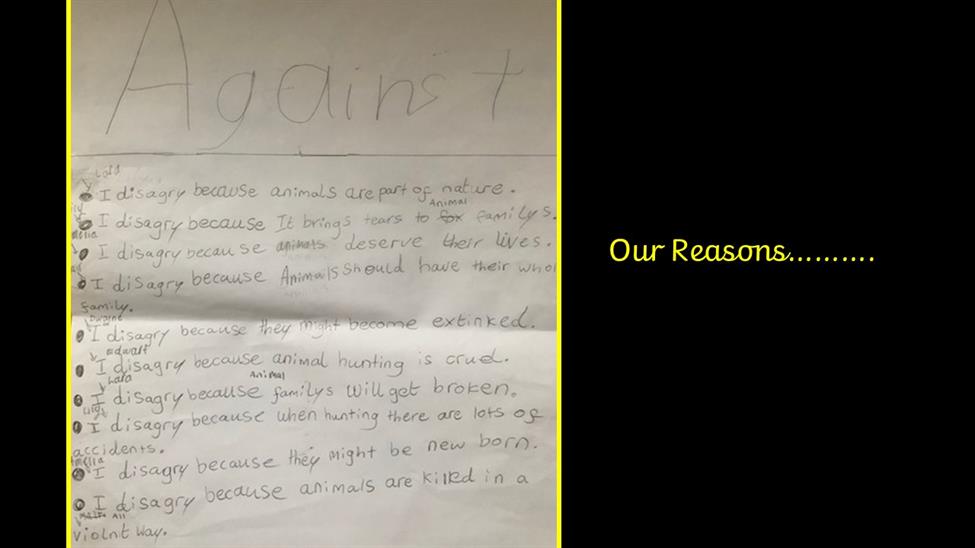 Against
I disagry because animals are part of nature.
Animal
I disagry because It brings tears to fox familys.
I disagry because animals deserve their lives.
I disagry because Animals should have their whol
family.
I disagry because they might become extinked.
I disagry because animal hunting is cruel.
Lara
Animal
I disagry because familys will get broken.
I disagry because when hunting there are lots of
accidents.
I disagry because they might be new born.
I disagry because animals are killed in a
violnt way.
Our Reasons..........